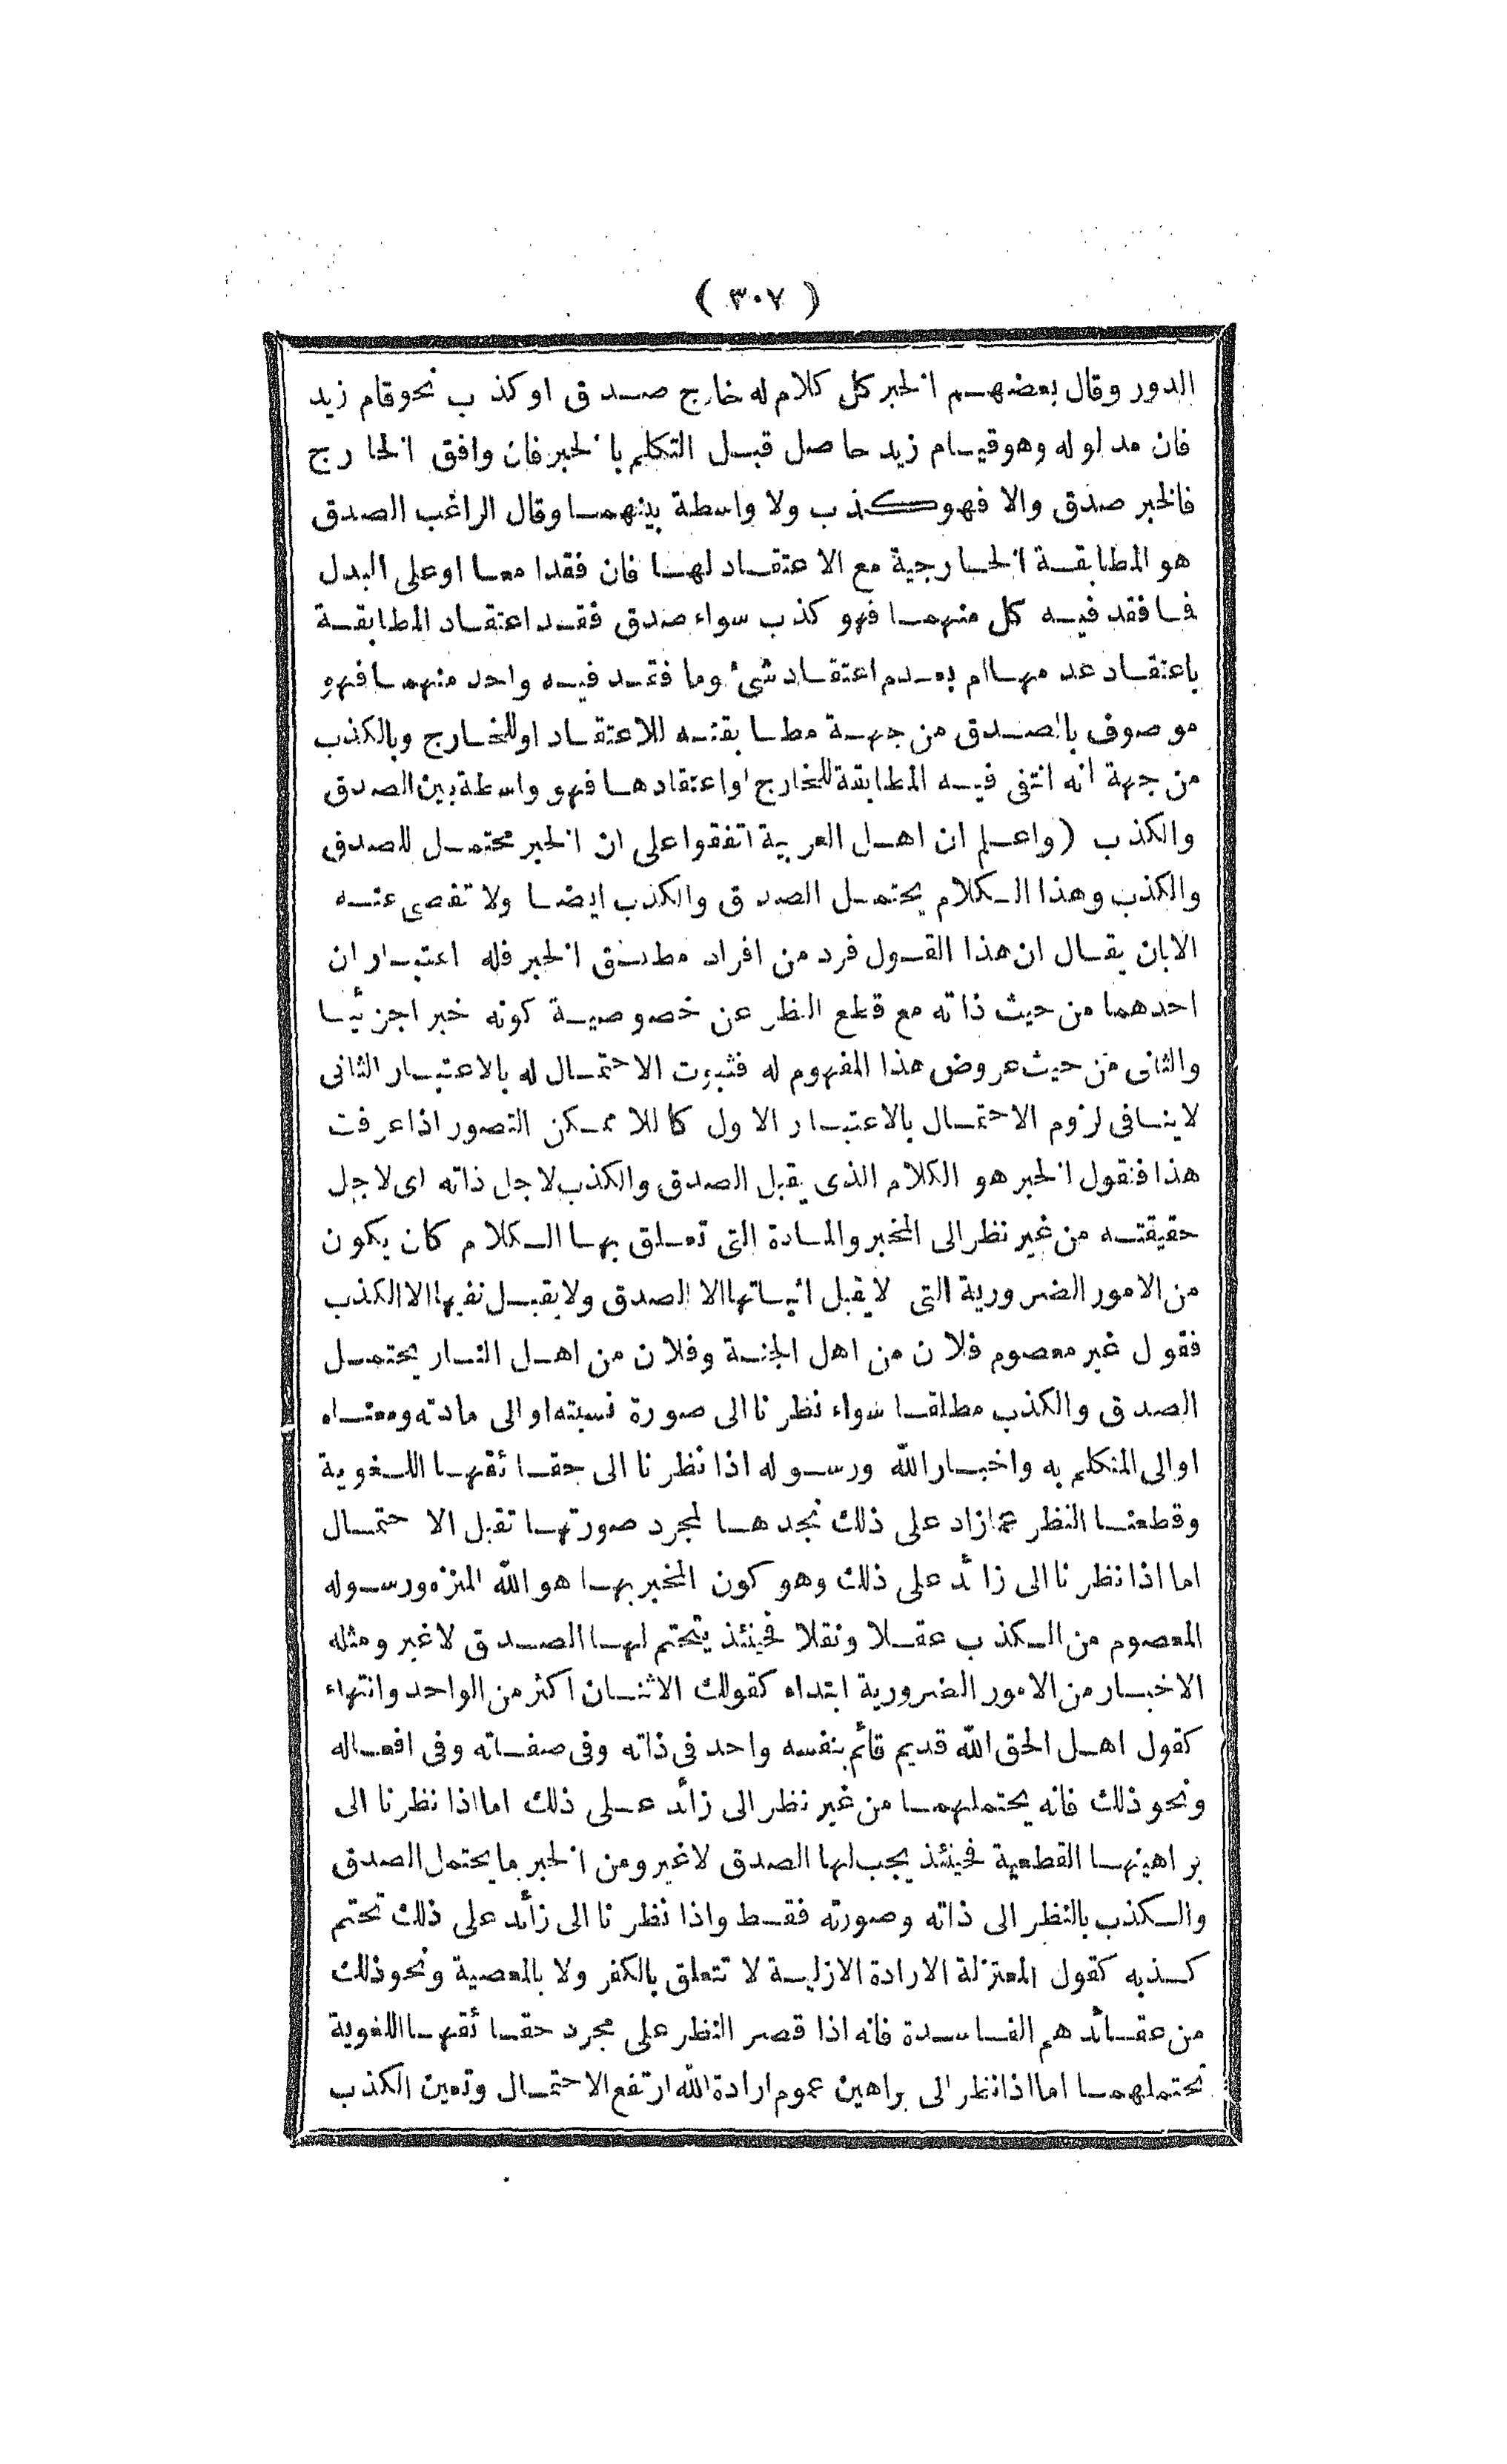 ( ٣٠٧ )
الدور وقال بعضهم الخبر كل كلام له خارج صدق اوكذب نحو قام زيد
فان مدلوله وهو قيام زيد حاصل قبل التكلم بالخبر فان وافق الخارج
فالخبر صدق والا فهو كذب ولا واسطة بينهما وقال الراغب الصدق
هو المطابقة الخارجية مع الاعتقاد لها فان فقدا معا او على البدل
فما فقد فيه كل منهما فهو كذب سواء صدق فقد اعتقاد المطابقة
باعتقاد عدمها ام بعدم اعتقاد شئ وما فقد فيه واحد منهما فهو
موصوف بالصدق من جهة مطابقته للاعتقاد او للخارج وبالكذب
من جهة انه انتفى فيه المطابقة للخارج او اعتقادها فهو واسطة بين الصدق
والكذب (واعلم ان اهل العربية اتفقوا على ان الخبر محتمل للصدق
والكذب وهذا الكلام يحتمل الصدق والكذب ايضا ولا تفصى عنه
الا بان يقال ان هذا القول فرد من افراد مطلق الخبر فله اعتباران
احدهما من حيث ذاته مع قطع النظر عن خصوصية كونه خبرا جزئيا
والثانى من حيث عروض هذا المفهوم له فثبوت الاحتمال له بالاعتبار الثانى
لاينافى لزوم الاحتمال بالاعتبار الاول كاللا ممكن التصور اذا عرفت
هذا فنقول الخبر هو الكلام الذى يقبل الصدق والكذب لاجل ذاته اى لاجل
حقيقته من غير نظر الى المخبر والمادة التى تعلق بها الكلام كان يكون
من الامور الضرورية التى لا يقبل اثباتها الا الصدق ولا يقبل نفيها الا الكذب
فقول غير معصوم فلان من اهل الجنة وفلان من اهل النار يحتمل
الصدق والكذب مطلقا سواء نظرنا الى صورة نسبته او الى مادته ومعناه
او الى المتكلم به واخبار الله ورسوله اذا نظرنا الى حقائقها اللغوية
وقطعنا النظر عما زاد على ذلك نجدها لمجرد صورتها تقبل الاحتمال
اما اذا نظرنا الى زائد على ذلك وهو كون المخبر بها هو الله المنزه ورسوله
المعصوم من الكذب عقلا ونقلا فحينئذ يتحتم لها الصدق لا غير ومثله
الاخبار من الامور الضرورية ابتداء كقولك الاثنان اكثر من الواحد وانتهاء
كقول اهل الحق الله قديم قائم بنفسه واحد فى ذاته وفى صفاته وفى افعاله
ونحو ذلك فانه يحتملهما من غير نظر الى زائد على ذلك اما اذا نظرنا الى
براهينها القطعية فحينئذ يجب لها الصدق لا غير ومن الخبر ما يحتمل الصدق
والكذب بالنظر الى ذاته وصورته فقط واذا نظرنا الى زائد على ذلك تحتم
كذبه كقول المعتزلة الارادة الازلية لا تتعلق بالكفر ولا بالمعصية ونحو ذلك
من عقائدهم الفاسدة فانه اذا قصر النظر على مجرد حقائقها اللغوية
تحتملهما اما اذا نظر الى براهين عموم ارادة الله ارتفع الاحتمال وتعين الكذب